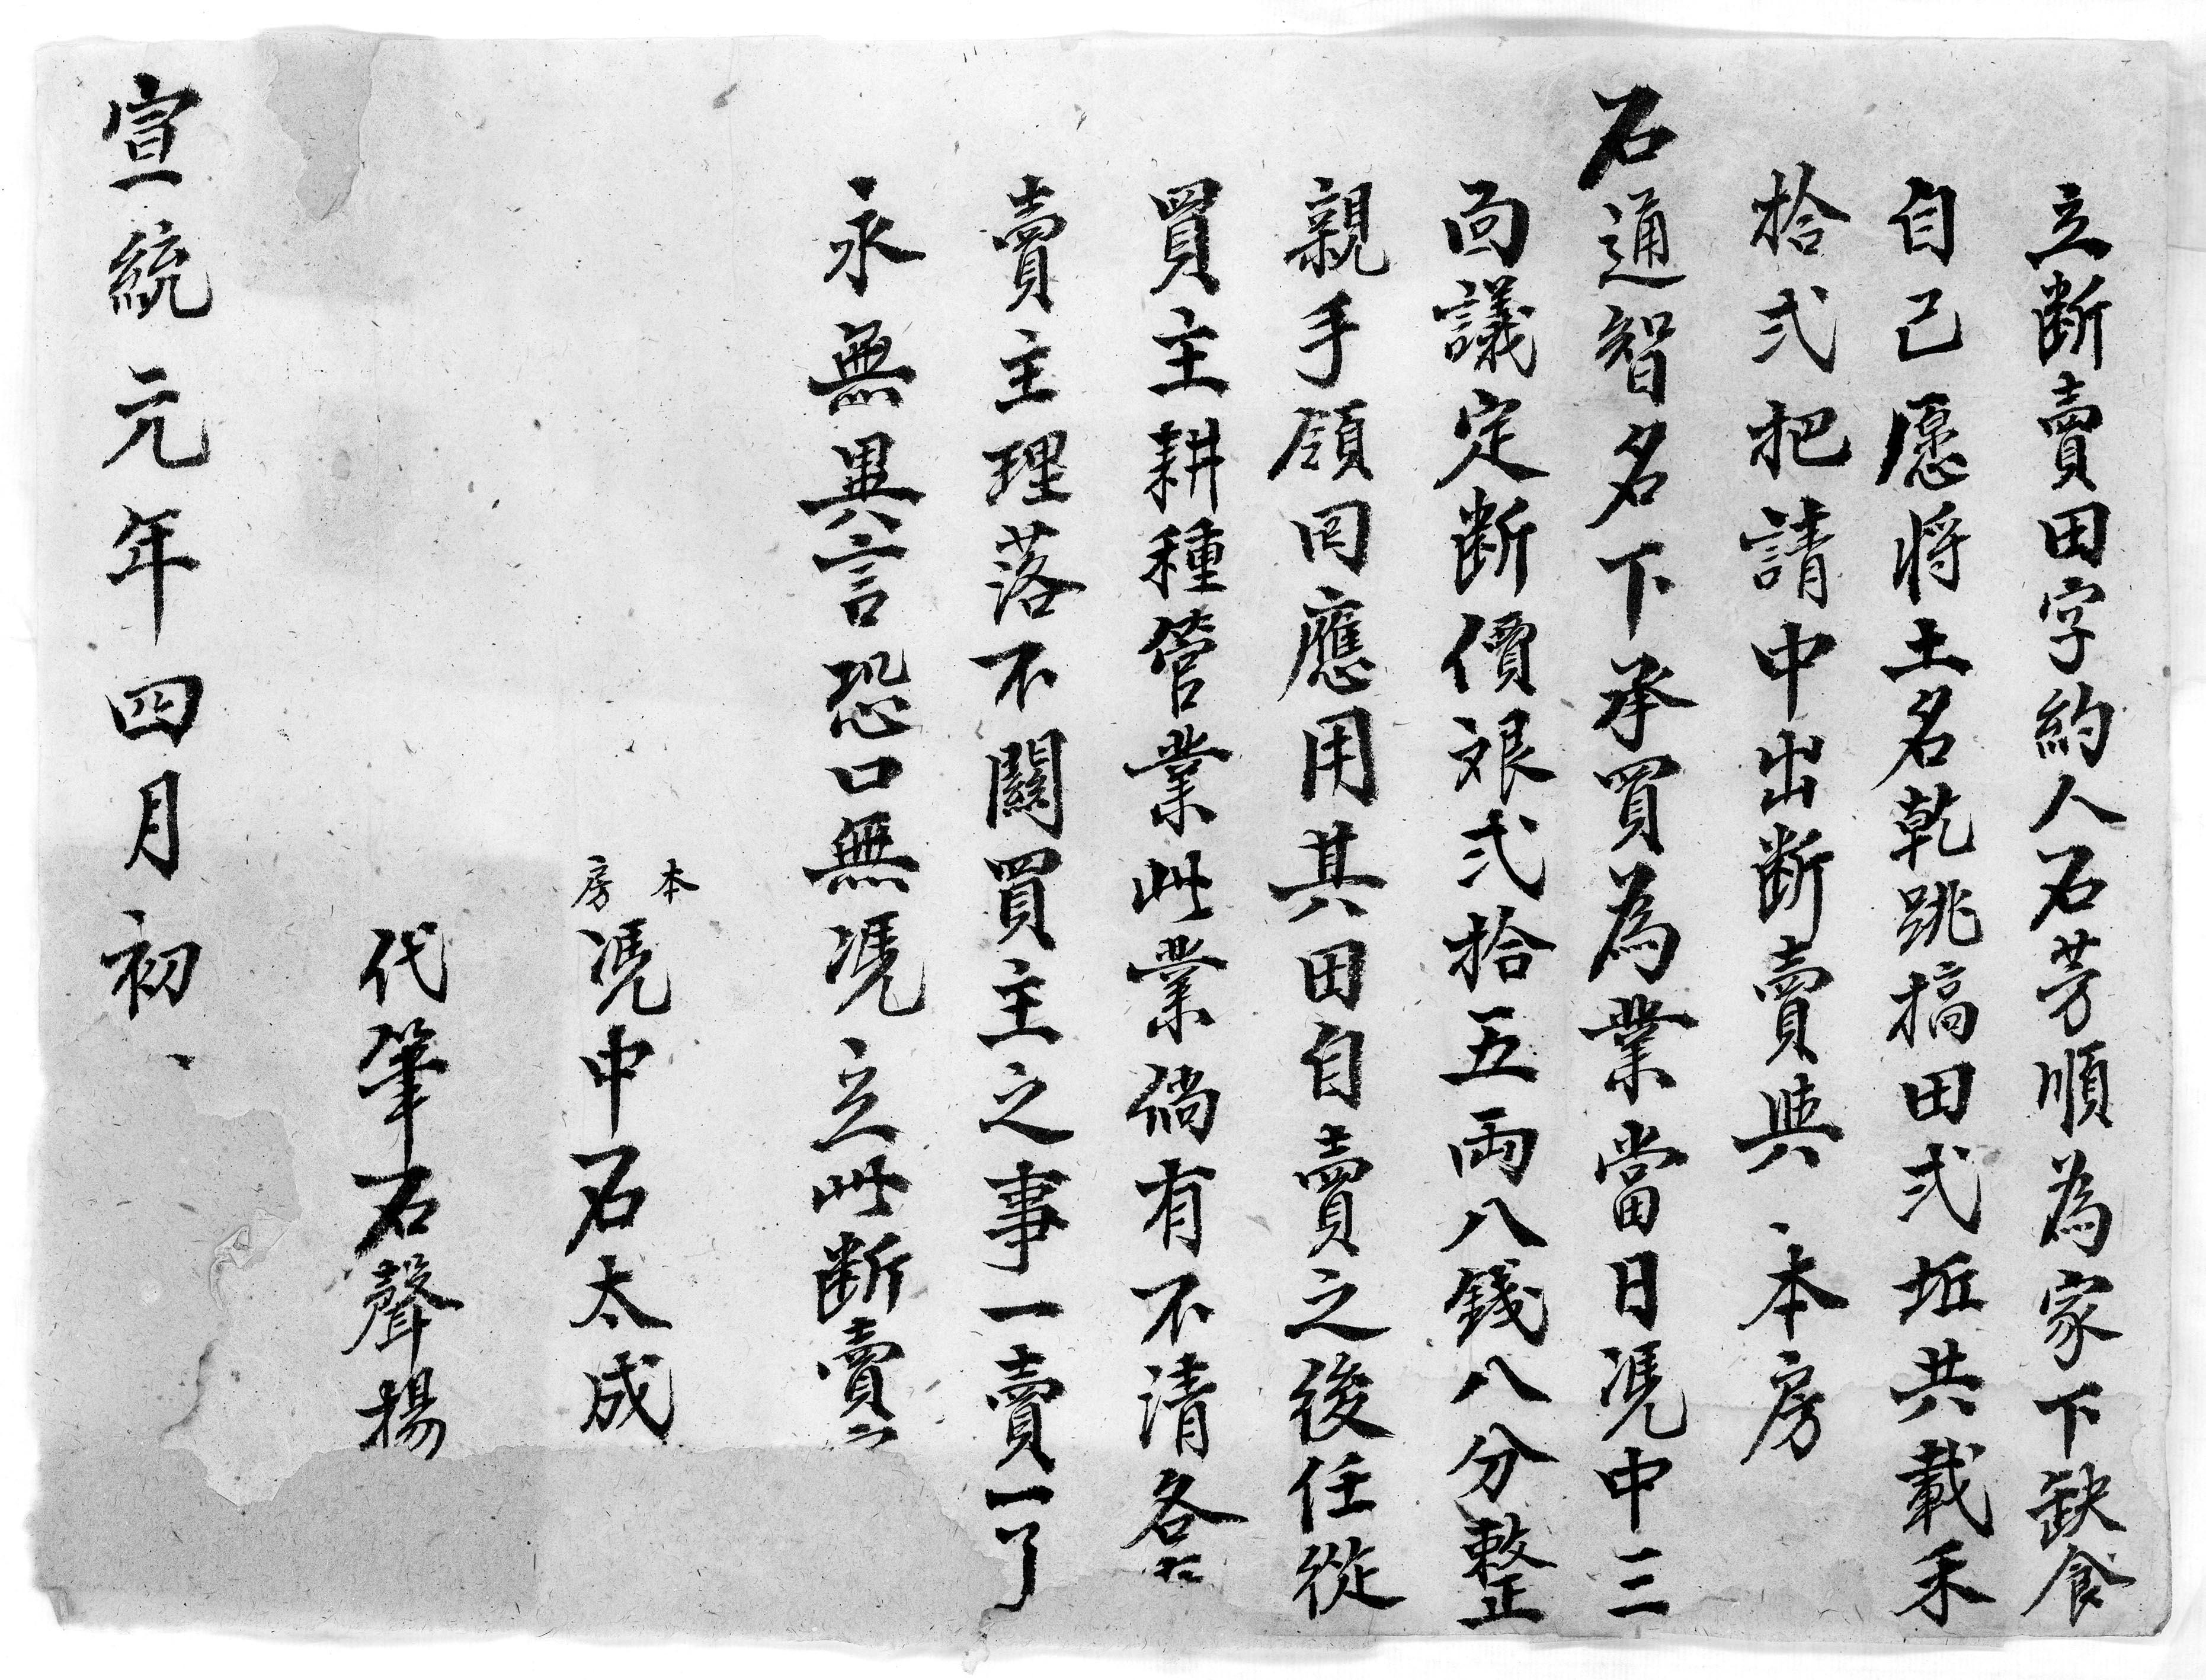 立断賣田字約人石芳順為家下缺食
自己愿将土名乾跳搞田弍坵共載禾
拾弍把請中出断賣與本房
石通智名下承買為業當日凴中三
面議定断價艮弍拾五両八錢八分整
親手領回應用其田自賣之後任從
買主耕種管業此業倘有不清各在
賣主理落不關買主之事一賣一了
永無異言恐口無凴立此断賣
本房凴中石太成
代筆石聲揚
宣統元年四月初